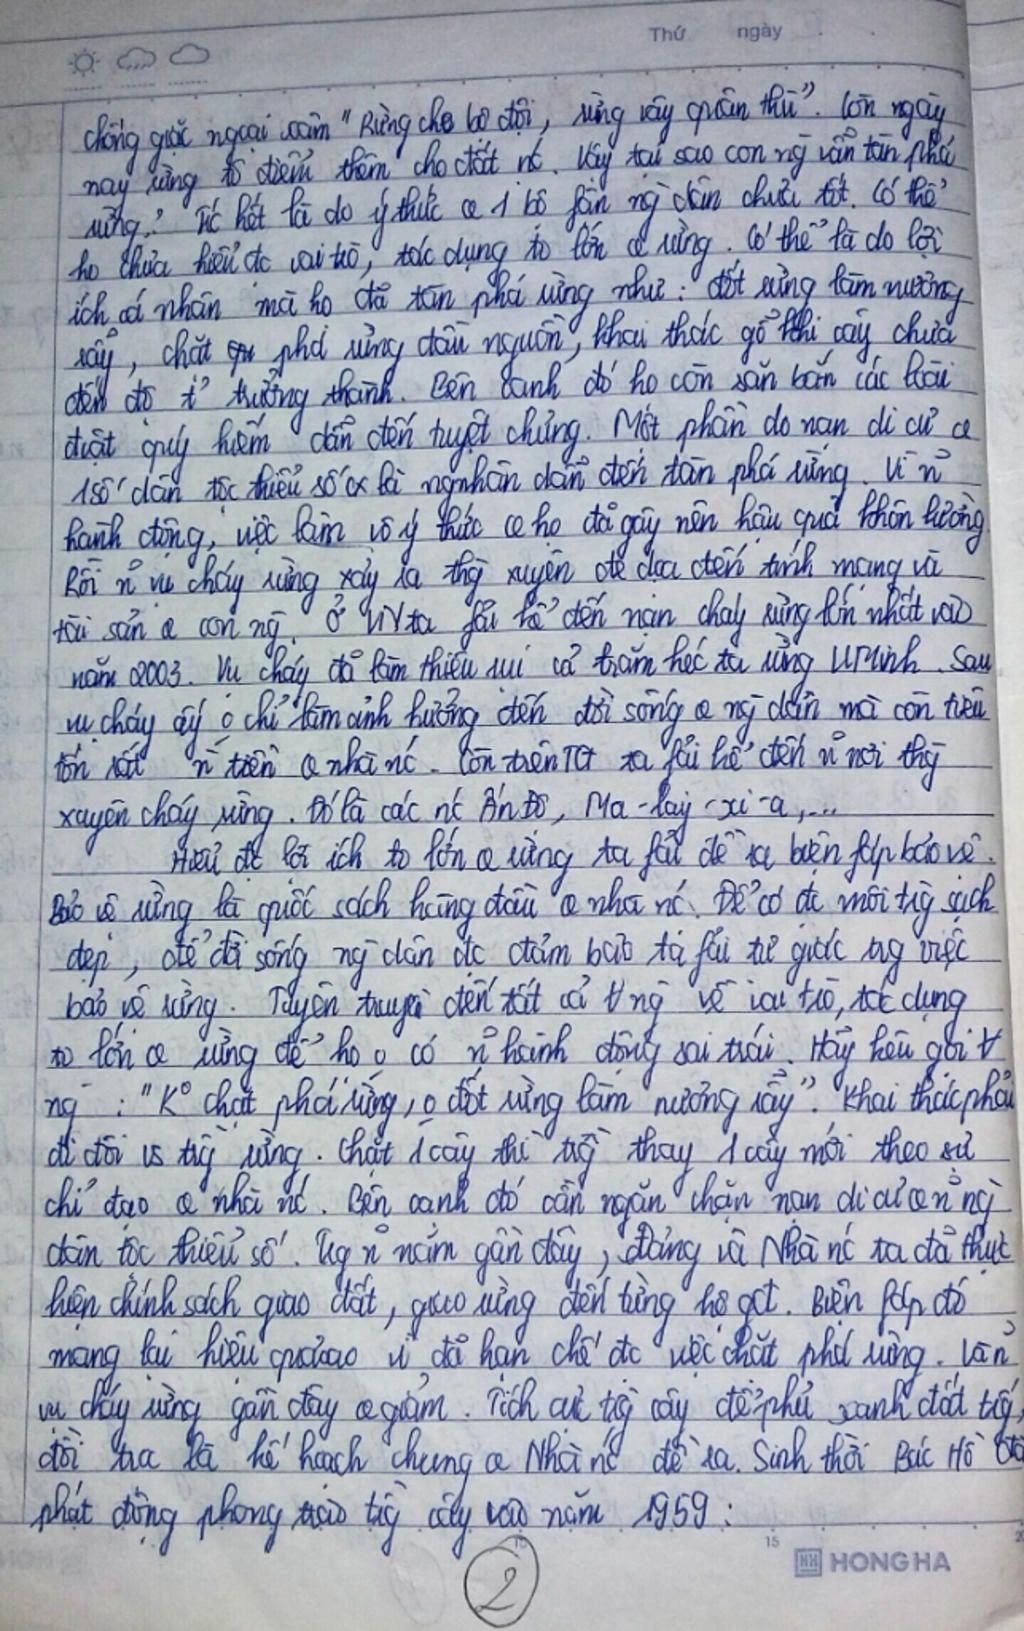 Thứ ngày
chống giặc ngoại xâm "Rừng che bộ đội, rừng vây quân thù". Còn ngày
nay rừng tô điểm thêm cho đất nc. Vậy tại sao con ng vẫn tàn phá
rừng? Tc hết là do ý thức @ 1 bộ fận ng dân chưa tốt. Có thể
họ chưa hiểu đc vai trò, tác dụng to lớn @ rừng. Có thể là do lợi
ích cá nhân mà họ đã tàn phá rừng như: đốt rừng làm nương
rẫy, chặt phá rừng đầu nguồn, khai thác gỗ khi cây chưa
đến độ trưởng thành. Bên cạnh đó họ còn săn bắn các loài
đvật quý hiếm dẫn đến tuyệt chủng. Một phần do nạn di cư @
1 số dân tộc thiểu số là ng nhân dẫn đến tàn phá rừng. Vì n~
hành động, việc làm vô ý thức @ họ đã gây nên hậu quả khôn lường
Rồi n~ vụ cháy rừng xảy ra thg xuyên đe dọa đến tính mạng và
tài sản @ con ng. Ở VN ta fải kể đến nạn cháy rừng lớn nhất vào
năm 2003. Vụ cháy đã làm thiêu rụi cả trăm héc ta rừng U Minh. Sau
vụ cháy ấy o chỉ làm ảnh hưởng đến đời sống @ ng dân mà còn tiêu
tốn rất n tiền @ nhà nc. Còn trên TG ta fải kể đến n~ nơi thg
xuyên cháy rừng. Đó là các nc Ấn Độ, Ma-lay-xi-a,...
Hiểu đc lợi ích to lớn @ rừng ta fải đề ra biện fáp bảo vệ.
Bảo vệ rừng là quốc sách hàng đầu @ nhà nc. Để có đc môi trg sạch
đẹp, để đời sống ng dân đc đảm bảo ta fải tự giác trg việc
bảo vệ rừng. Tuyên truyền đến tất cả ∀ ng về vai trò, tác dụng
to lớn @ rừng để họ o có n~ hành động sai trái. Hãy kêu gọi ∀
ng: "K° chặt phá rừng, o đốt rừng làm nương rẫy". Khai thác phải
đi đôi vs trg rừng. Chặt 1 cây thì trg thay 1 cây mới theo sự
chỉ đạo @ nhà nc. Bên cạnh đó cần ngăn chặn nạn di cư @ n~ ng
dân tộc thiểu số. Trg n~ năm gần đây, Đảng và Nhà nc ta đã thực
hiện chính sách giao đất, giao rừng đến từng hộ gđ. Biện fáp đó
mang lại hiệu quả cao vì đã hạn chế đc việc chặt phá rừng.
vụ cháy rừng gần đây @ giảm. Tích cực trg cây để phủ xanh đất trg,
đồi trọc là kế hoạch chung @ Nhà nc đề ra. Sinh thời Bác Hồ đã
phát động phong trào trg cây vào năm 1959:
15
HONG HA
2